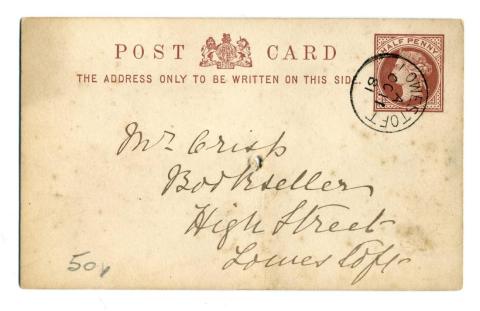 POST CARD
THE ADDRESS ONLY TO BE WRITTEN ON THIS SIDE.
HALF PENNY
LOWESTOFT
81
Mr Crisp
Bookseller
High Street
Lowestoft